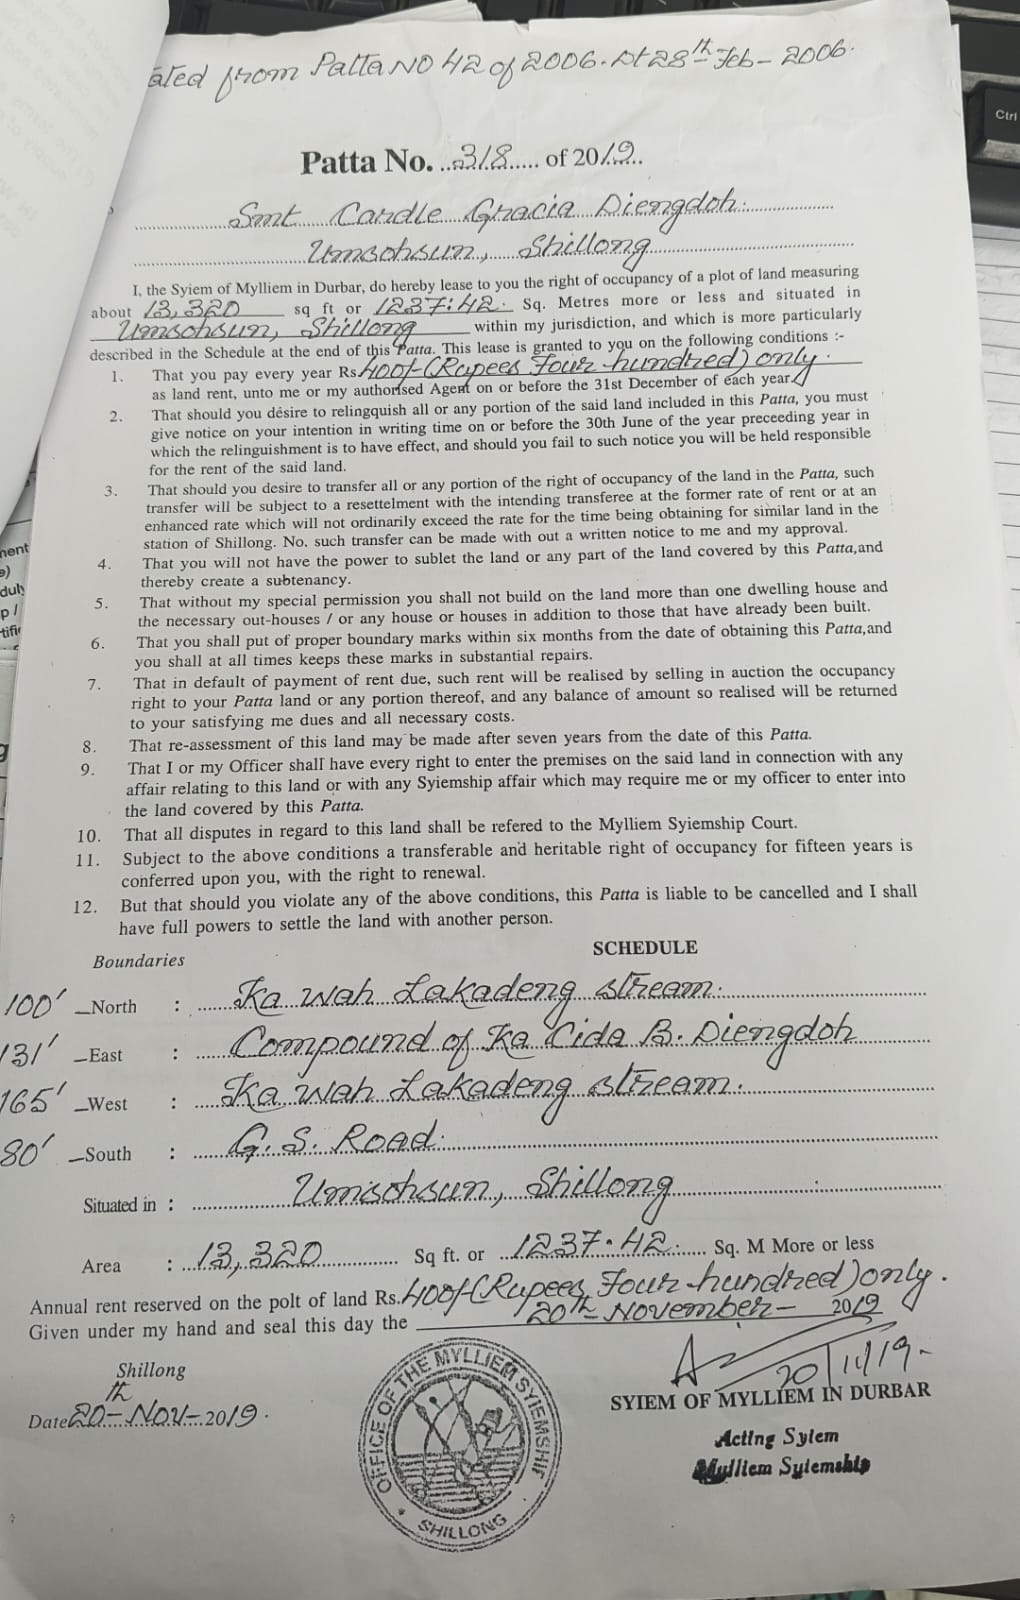 ated from Patta NO 42 of 2006. Dt 28th Feb - 2006.
Patta No. 318 of 2019.
Smt Cardle Gracia Diengdoh.
Umsohsun, Shillong
I, the Syiem of Mylliem in Durbar, do hereby lease to you the right of occupancy of a plot of land measuring
about 13,320 sq ft or 1237.42. Sq. Metres more or less and situated in
Umsohsun, Shillong within my jurisdiction, and which is more particularly
described in the Schedule at the end of this Patta. This lease is granted to you on the following conditions :-
1. That you pay every year Rs. 400/- (Rupees Four hundred) only.
as land rent, unto me or my authorised Agent on or before the 31st December of each year.
2. That should you desire to relingquish all or any portion of the said land included in this Patta, you must
give notice on your intention in writing time on or before the 30th June of the year preceeding year in
which the relinguishment is to have effect, and should you fail to such notice you will be held responsible
for the rent of the said land.
3. That should you desire to transfer all or any portion of the right of occupancy of the land in the Patta, such
transfer will be subject to a resettelment with the intending transferee at the former rate of rent or at an
enhanced rate which will not ordinarily exceed the rate for the time being obtaining for similar land in the
station of Shillong. No. such transfer can be made with out a written notice to me and my approval.
4. That you will not have the power to sublet the land or any part of the land covered by this Patta,and
thereby create a subtenancy.
5. That without my special permission you shall not build on the land more than one dwelling house and
the necessary out-houses / or any house or houses in addition to those that have already been built.
6. That you shall put of proper boundary marks within six months from the date of obtaining this Patta,and
you shall at all times keeps these marks in substantial repairs.
7. That in default of payment of rent due, such rent will be realised by selling in auction the occupancy
right to your Patta land or any portion thereof, and any balance of amount so realised will be returned
to your satisfying me dues and all necessary costs.
8. That re-assessment of this land may be made after seven years from the date of this Patta.
9. That I or my Officer shall have every right to enter the premises on the said land in connection with any
affair relating to this land or with any Syiemship affair which may require me or my officer to enter into
the land covered by this Patta.
10. That all disputes in regard to this land shall be refered to the Mylliem Syiemship Court.
11. Subject to the above conditions a transferable and heritable right of occupancy for fifteen years is
conferred upon you, with the right to renewal.
12. But that should you violate any of the above conditions, this Patta is liable to be cancelled and I shall
have full powers to settle the land with another person.
SCHEDULE
Boundaries
100' North : Ka Wah Lakadeng stream.
131' East : Compound of Ka Cida B. Diengdoh
165' West : Ka Wah Lakadeng stream.
80' South : G. S. Road.
Situated in : Umsohsun, Shillong
Area : 13,320 Sq ft. or 1237.42. Sq. M More or less
Annual rent reserved on the polt of land Rs. 400/- (Rupees Four hundred) only.
Given under my hand and seal this day the 20th November - 2019
Shillong
20/11/19.
SYIEM OF MYLLIEM IN DURBAR
Date 20th-Nov-2019.
Acting Syiem
Mylliem Syiemship
OFFICE OF THE MYLLIEM SYIEMSHIP
SHILLONG
Ctrl